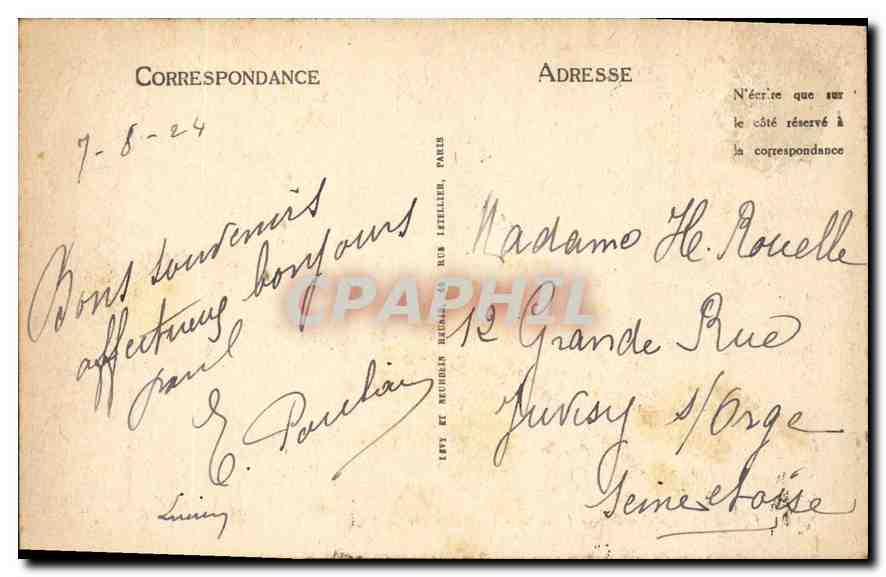 CORRESPONDANCE
7-8-24
Bons souvenirs
affectueux bonjours
E. Poulain
Lucien
LÉVY ET NEURDEIN RÉUNIS, 44 RUE LETELLIER, PARIS
ADRESSE
N'écrire que sur
le côté réservé à
la correspondance
Madame He. Rouelle
12 Grande Rue
Juvisy s/Orge
Seine et oise
CPAPHIL